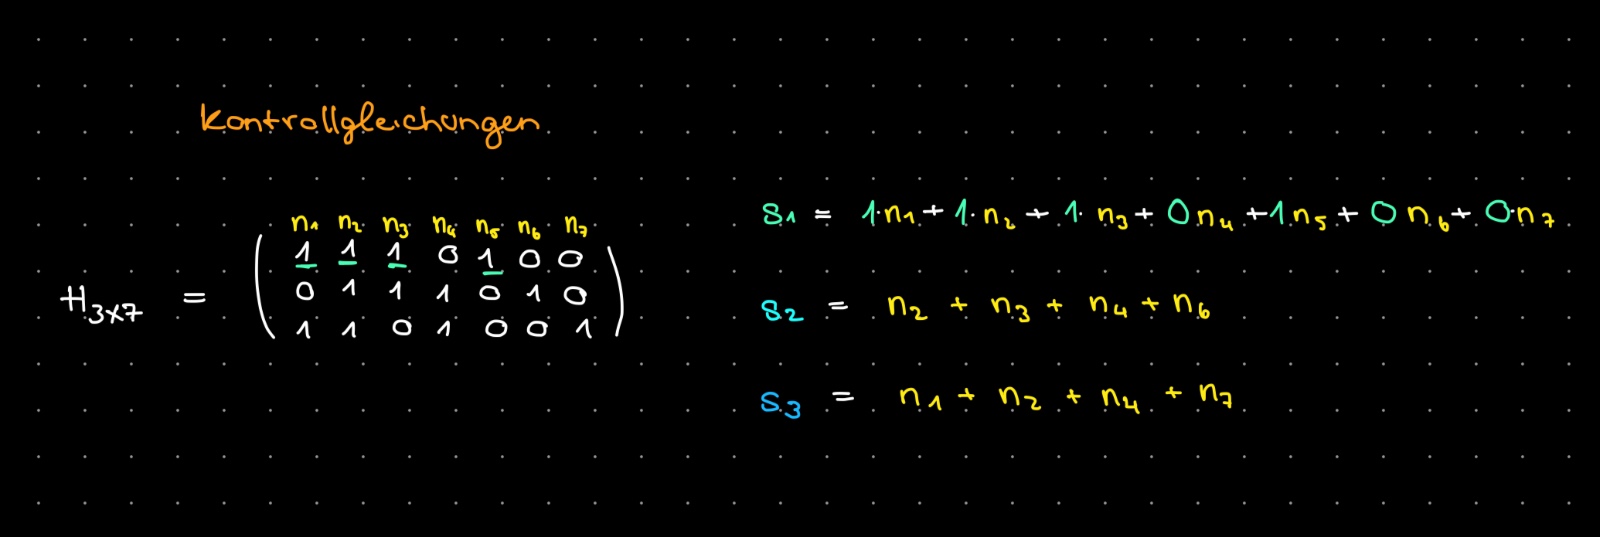 Kontrollgleichungen
n₁ n₂ n₃ n₄ n₅ n₆ n₇
1 1 1 0 1 0 0
H₃ₓ₇ = 0 1 1 1 0 1 0
1 1 0 1 0 0 1
S₁ = 1·n₁ + 1·n₂ + 1·n₃ + 0n₄ + 1n₅ + 0n₆ + 0·n₇
S₂ = n₂ + n₃ + n₄ + n₆
S₃ = n₁ + n₂ + n₄ + n₇